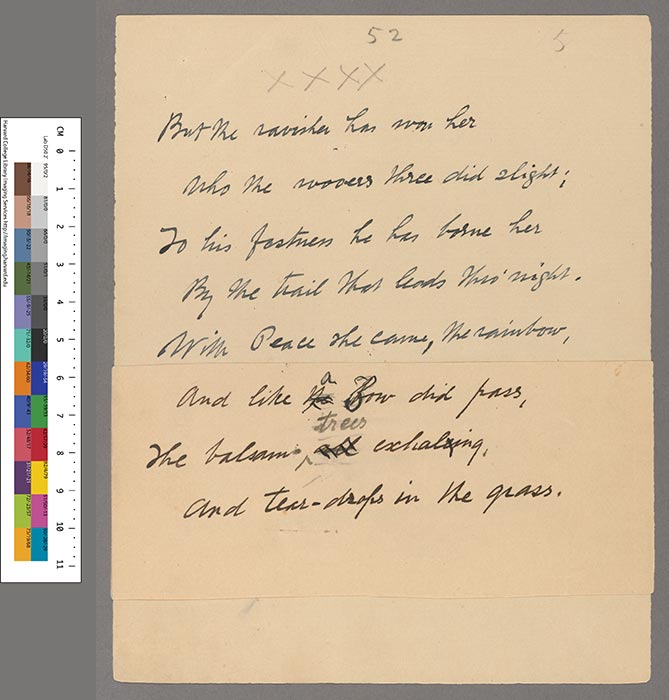 52 5
x x x x
But the ravisher has won her
Who the wooers three did slight;
To his fastness he has borne her
By the trail that leads thro' night.
With Peace she came, the rainbow,
a
And like Bow did pass,
trees
The balsam exhaling,
And tear-drops in the grass.
CM 0 1 2 3 4 5 6 7 8 9 10 11
Harvard College Library Imaging Services